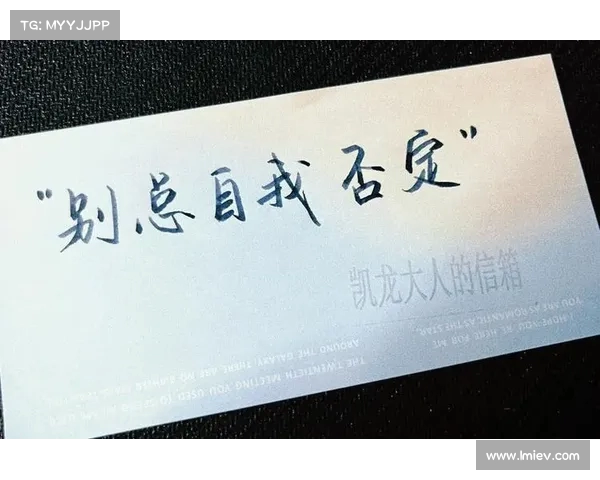 TG: MYYJJPP
“别总自我否定”
凯龙大人的信箱
I HOPE YOU'RE HERE FOR ME,
YOU ARE AS ROMANTIC AS THE STAR.
THE TWENTIETH MEETING YOU USED TO
AROUND THE GALAXY, THERE ARE NO
www.lmiev.com